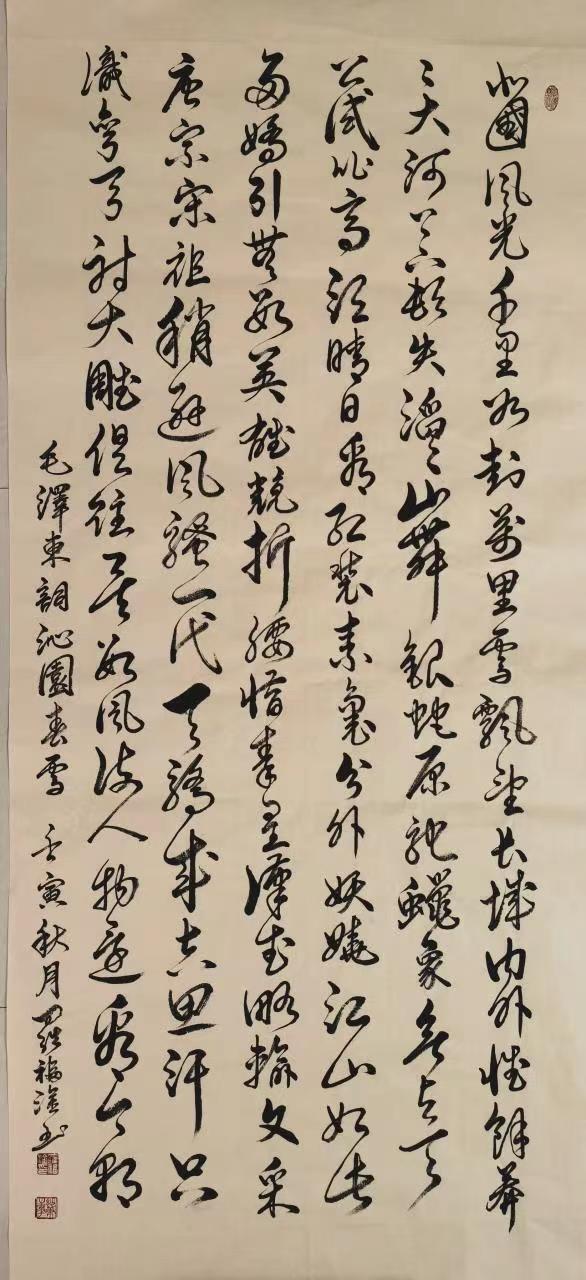 北國風光千里冰封萬里雪飄望長城内外惟餘莽
々大河上下頓失滔々山舞銀蛇原馳蠟象欲与天
公試比高須晴日看紅裝素裹分外妖嬈江山如此
多嬌引無數英雄競折腰惜秦皇漢武略輸文采
唐宗宋祖稍遜風騷一代天驕成吉思汗只
識彎弓射大雕俱往矣數風流人物還看今朝
毛澤東詞沁園春雪 壬寅秋月羅福書